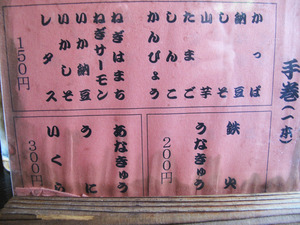 手巻(一本)
かっぱ
納豆
しそ
山芋
たまご
しんこ
かんぴょう
ねぎはまち
ねぎサーモン
いか納豆
いかしそ
レタス
150円
鉄火
うなきゅう
200円
あなきゅう
うに
いくら
300円